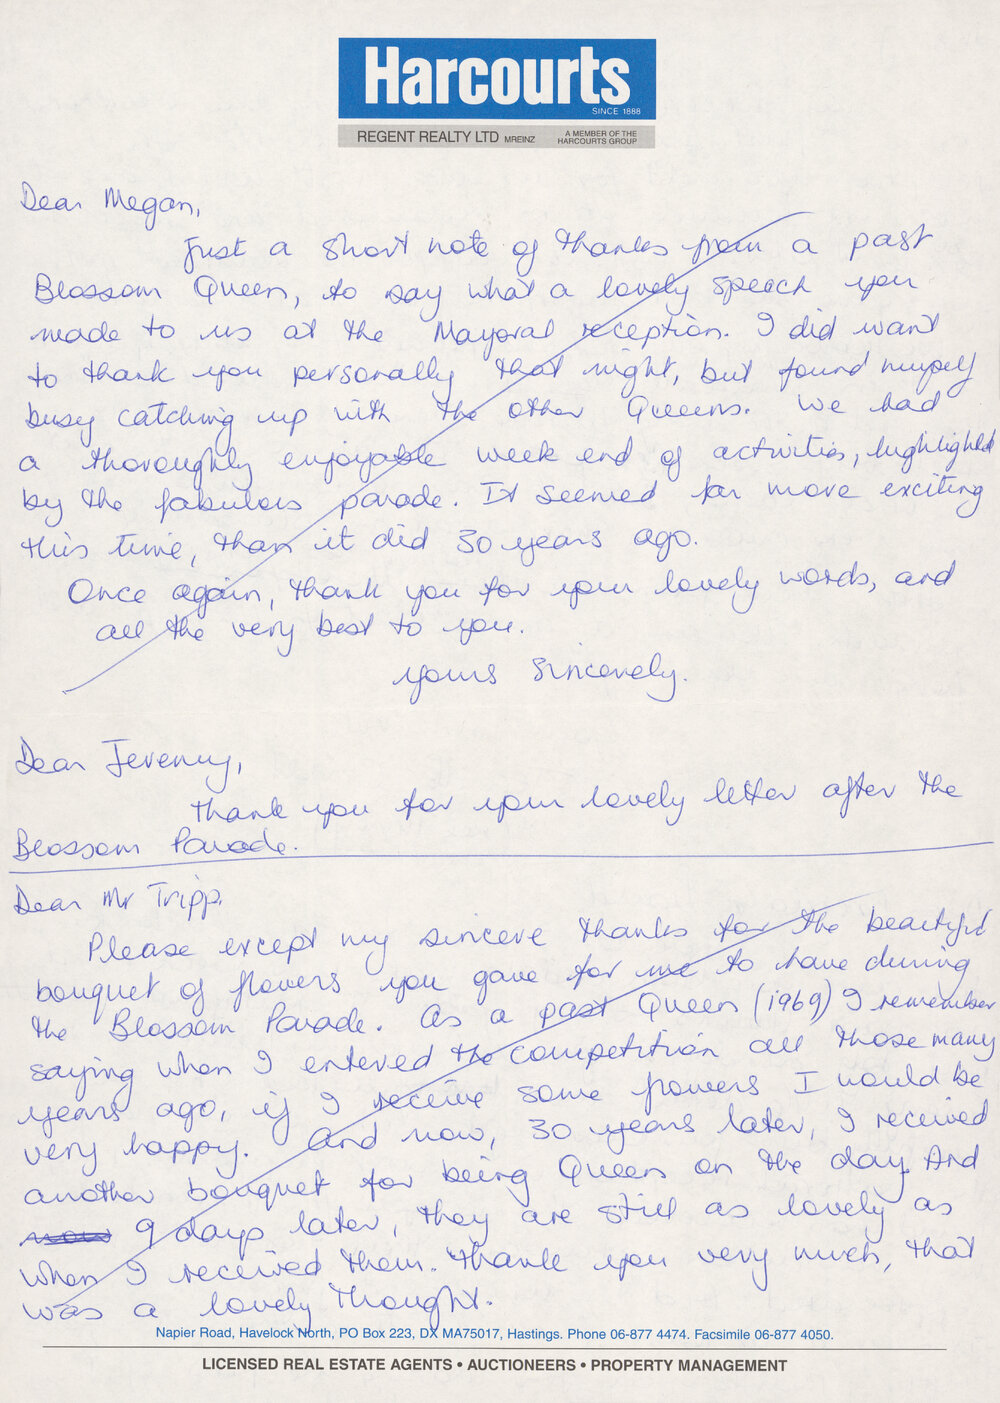 Harcourts
SINCE 1888
REGENT REALTY LTD MREINZ
A MEMBER OF THE
HARCOURTS GROUP
Dear Megan,
Just a short note of thanks from a past
Blossom Queen, to say what a lovely speech you
made to us at the Mayoral reception. I did want
to thank you personally that night, but found myself
busy catching up with the other Queens. We had
a thoroughly enjoyable week end of activities, highlighted
by the fabulous parade. It seemed far more exciting
this time, than it did 30 years ago.
Once again, thank you for your lovely words, and
all the very best to you.
yours sincerely.
Dear Jeremy,
Thank you for your lovely letter after the
Blossom Parade.
Dear Mr Tripp,
Please except my sincere thanks for the beautiful
bouquet of flowers you gave for me to have during
the Blossom Parade. As a past Queen (1969) I remember
saying when I entered the competition all those many
years ago, if I receive some flowers I would be
very happy. And now, 30 years later, I received
another bouquet for being Queen on the day. And
now 9 days later, they are still as lovely as
when I received them. Thank you very much, that
was a lovely thought.
Napier Road, Havelock North, PO Box 223, DX MA75017, Hastings. Phone 06-877 4474. Facsimile 06-877 4050.
LICENSED REAL ESTATE AGENTS • AUCTIONEERS • PROPERTY MANAGEMENT